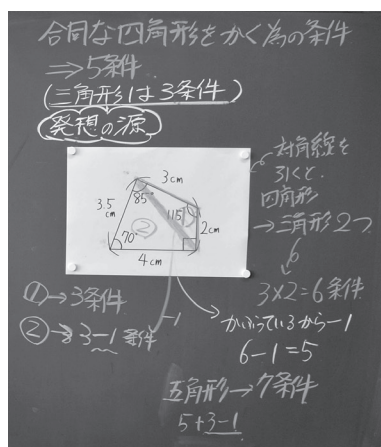 合同な四角形をかく為の条件
⇒5条件
(三角形は3条件)
発想の源
3cm
85°
3.5
cm
②
115°
2cm
70°
4cm
対角線を
引くと、
四角形
→三角形2つ
3×2=6条件
①→3条件
②→3-1条件
-1
かぶっているから-1
6-1=5
五角形→7条件
5+3-1